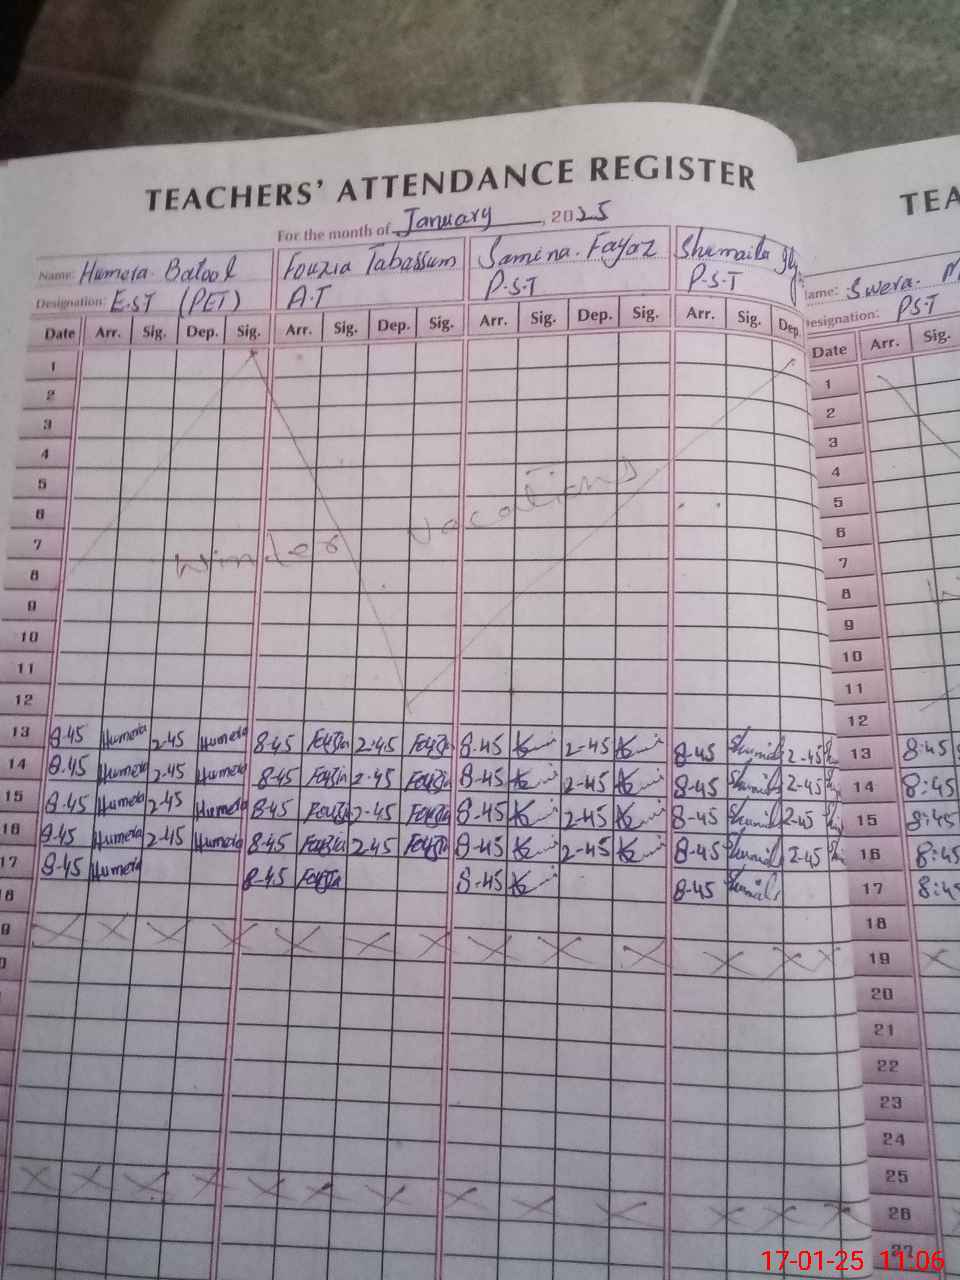 TEACHERS' ATTENDANCE REGISTER
For the month of January, 2025
Name: Humera Batool Fouzia Tabassum Samina Fayaz Shumaila
Designation: E.S.T (PET) A.T P.S.T P.S.T
Date Arr. Sig. Dep. Sig. Arr. Sig. Dep. Sig. Arr. Sig. Dep. Sig. Arr. Sig. Dep.
1
2
3
4
5
6
7
8
9
10
11
12
winter vacations
13 8.45 Humera 2-45 Humera 8-45 Fouzia 2-45 Fouzia 8-45 2-45 8-45 Shumaila 2-45
14 8.45 Humera 2-45 Humera 8-45 Fouzia 2-45 Fouzia 8-45 2-45 8-45 Shumaila 2-45
15 8-45 Humera 2-45 Humera 8-45 Fouzia 2-45 Fouzia 8-45 2-45 8-45 Shumaila 2-45
16 8-45 Humera 2-45 Humera 8-45 Fouzia 2-45 Fouzia 8-45 2-45 8-45 Shumaila 2-45
17 8-45 Humera 8-45 Fouzia 8-45 8-45 Shumaila
18
9
0
TEA
Name: Swera
Designation: PST
Date Arr. Sig.
1
2
3
4
5
6
7
8
9
10
11
12
13 8:45
14 8:45
15 8:45
16 8:45
17 8:45
18
19
20
21
22
23
24
25
26
27
17-01-25 11:06